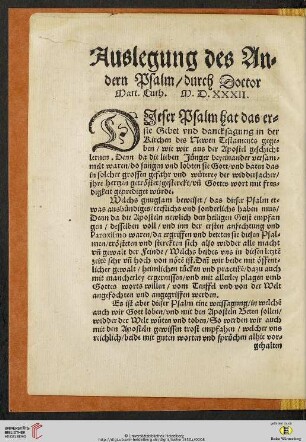 Auslegung des An-
dern Psalm/durch Doctor
Mart. Luth. M. D. XXXII.
DJeser Psalm hat das er-
ste Gebet vnd dancksagung in der
Kirchen des Newen Testaments gege-
ben/wie wir aus der Apostel geschicht
lernen. Denn da die lieben Jünger beyeinander versam-
melt waren/da sungen vnd lobten sie Gott vnd baten das
in solcher grossen gefahr vnd wüten der widdersacher/
jhre hertzen getröstet/gesterckt/vnd Gottes wort mit freu-
digkeit geprediget würde.
Wilchs gnugsam beweiset/das dieser Psalm et-
was ausbündiges/treflichs vnd sonderlichs haben mus/
Denn da die Aposteln newlich den heiligen Geist empfan-
gen/desselben voll/vnd inn der ersten anfechtung vnd
waren/da ergriffen vnd betten sie diesen Psal-
men/trösteten vnd sterckten sich also widder alle macht
vnd gewalt der Feinde/Wilchs beides vns in dieser letzte
zeite sehr vnd hoch von nöte ist. Das wir beide mit öffent-
licher gewalt/heimlichen tücken vnd practick/dazu auch
mit mancherley ergernissen/vnd mit allerley plagen vmb
Gottes worts willen/vom Teuffel vnd von der Welt
angefochten vnd angegriffen werden.
Es ist aber dieser Psalm eine weissagung/in wilche
auch wir Gott loben/vnd mit den Aposteln Beten sollen/
widder der Welt wüten vnd toben/So werden wir auch
mit den Aposteln gewissen trost empfahen/welcher vns
reichlich/beide mit guten worten vnd sprüchen alhie vor-
gehalten
UNIVERSITÄTS-
BIBLIOTHEK
HEIDELBERG
© Universitätsbibliothek Heidelberg